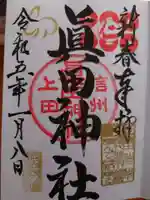 新春奉拝
眞田神社
信州
上田
令和五年一月八日